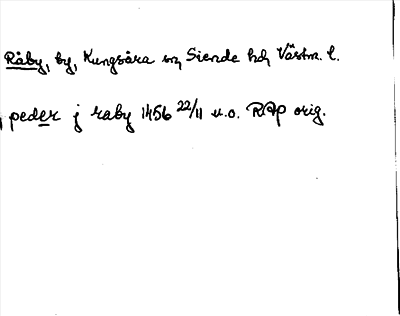 Råby, by, Kungsåra sn, Siende hd, Västm. l.
peder j raby 1456 22/11 u.o. RAp orig.